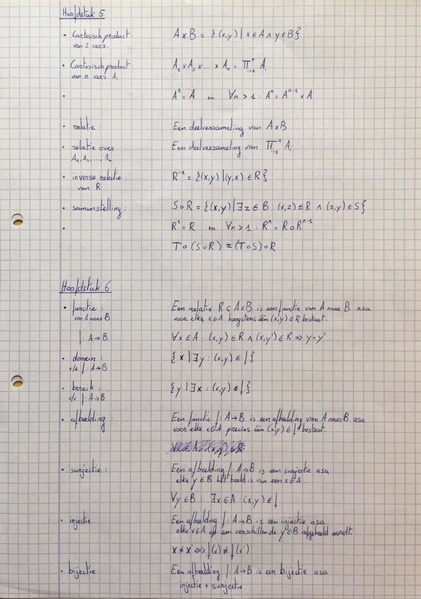 Hoofdstuk 5
• Cartesisch product van 2 verz. A × B = {(x,y) | x ∈ A ∧ y ∈ B}
• Cartesisch product van n verz. Aᵢ A₁ × A₂ × ... × Aₙ = ∏ⁿᵢ₌₁ Aᵢ
• A¹ = A en ∀n > 1 : Aⁿ = Aⁿ⁻¹ × A
• relatie : Een deelverzameling van A × B
• relatie over A₁, A₂, ..., Aₙ Een deelverzameling van ∏ⁿᵢ₌₁ Aᵢ
• inverse relatie van R R⁻¹ = {(x,y) | (y,x) ∈ R}
• samenstelling : S∘R = {(x,y) | ∃z ∈ B (x,z) ∈ R ∧ (z,y) ∈ S}
• R¹ = R en ∀n > 1 : Rⁿ = R∘Rⁿ⁻¹
T∘(S∘R) = (T∘S)∘R
Hoofdstuk 6
• functie van A naar B Een relatie R ⊂ A×B is een functie van A naar B asa
voor elke x∈A hoogstens één (x,y) ∈ R bestaat.
f : A→B ∀x∈A : (x,y)∈R ∧ (x,y')∈R ⇒ y=y'
• domein : v/e f : A→B {x | ∃y : (x,y) ∈ f}
• bereik : v/e f : A→B {y | ∃x : (x,y) ∈ f}
• afbeelding : Een functie f : A→B is een afbeelding van A naar B asa
voor elke x∈A precies één (x,y) ∈ f bestaat.
• surjectie : Een afbeelding f : A→B is een surjectie asa
elke y∈B het beeld is van een x∈A
∀y∈B : ∃x∈A : (x,y) ∈ f
• injectie Een afbeelding f : A→B is een injectie asa
elke x∈A op een verschillende y∈B afgebeeld wordt.
x ≠ x' ⇔ f(x) ≠ f(x')
• bijectie Een afbeelding f : A→B is een bijectie asa
injectie + surjectie